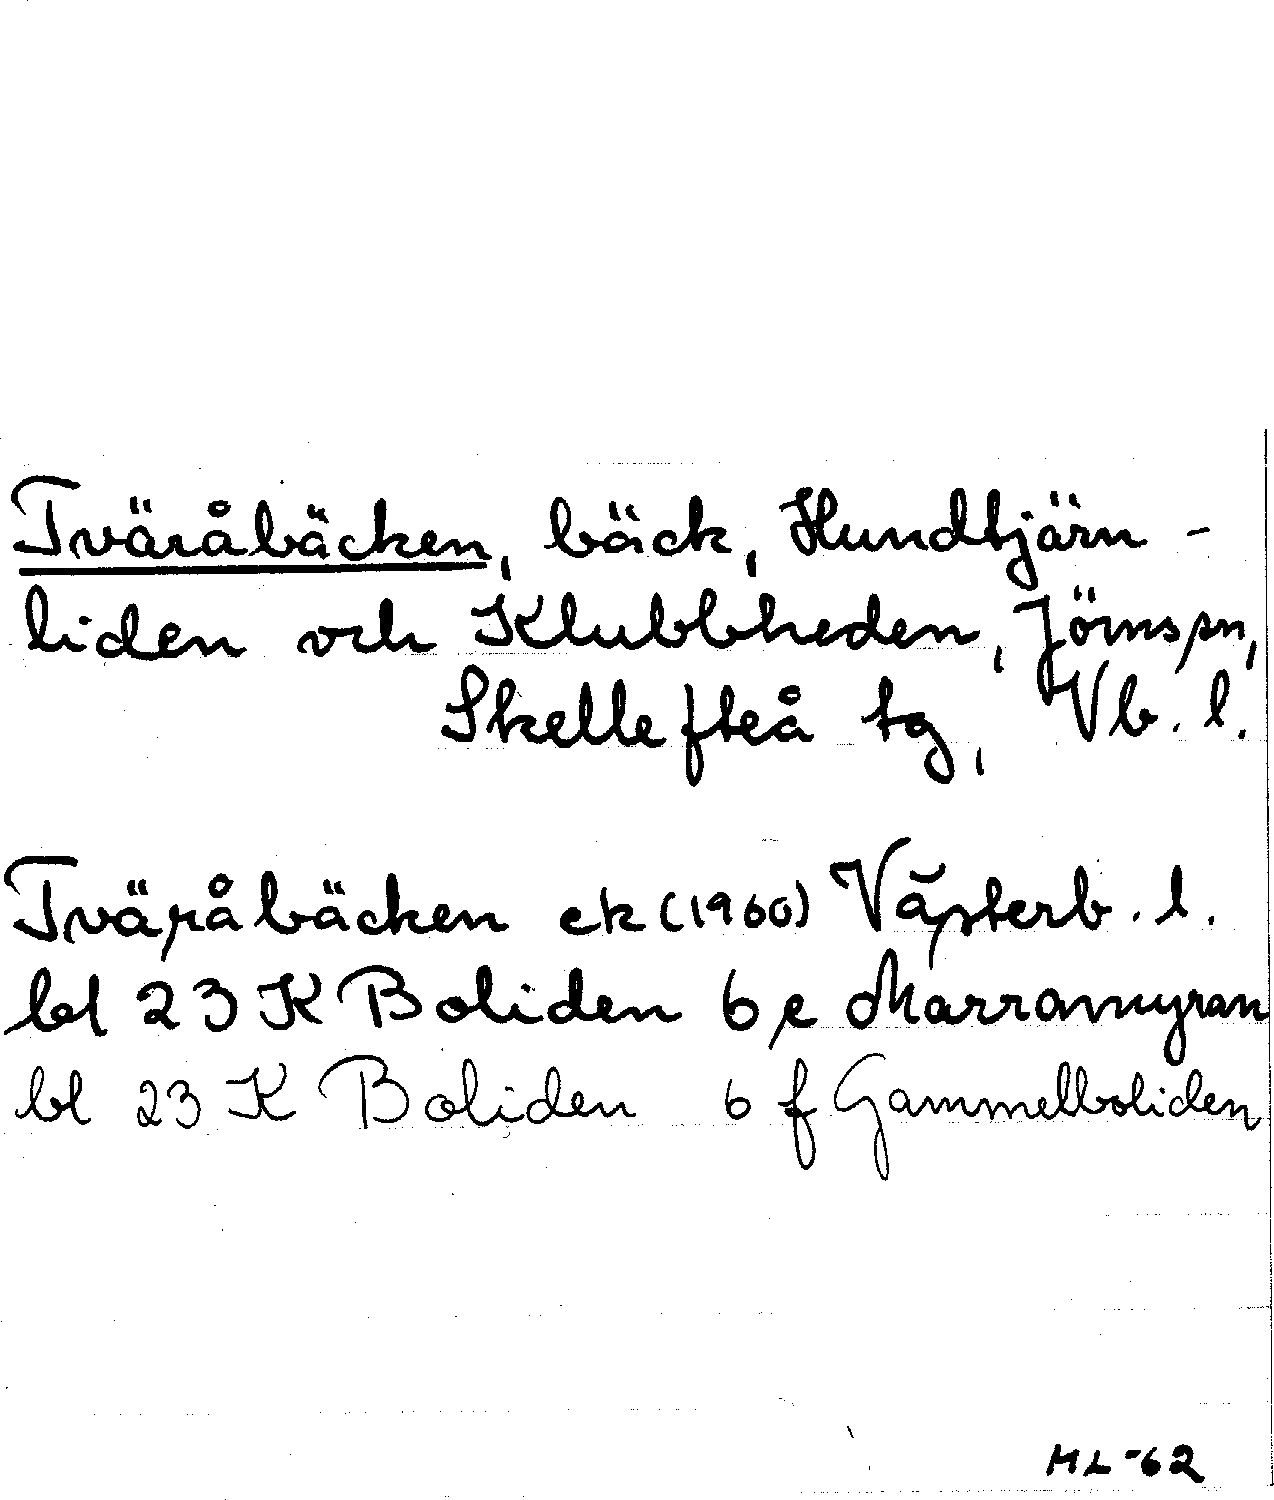 Tväråbäcken, bäck, Hundtjärn-
liden och Klubbheden, Jörns sn,
Skellefteå tg, Vb. l.
Tväråbäcken ek (1960) Västerb. l.
bl 23 K Boliden 6 e Marramyran
bl 23 K Boliden 6 f Gammelboliden
ML-62